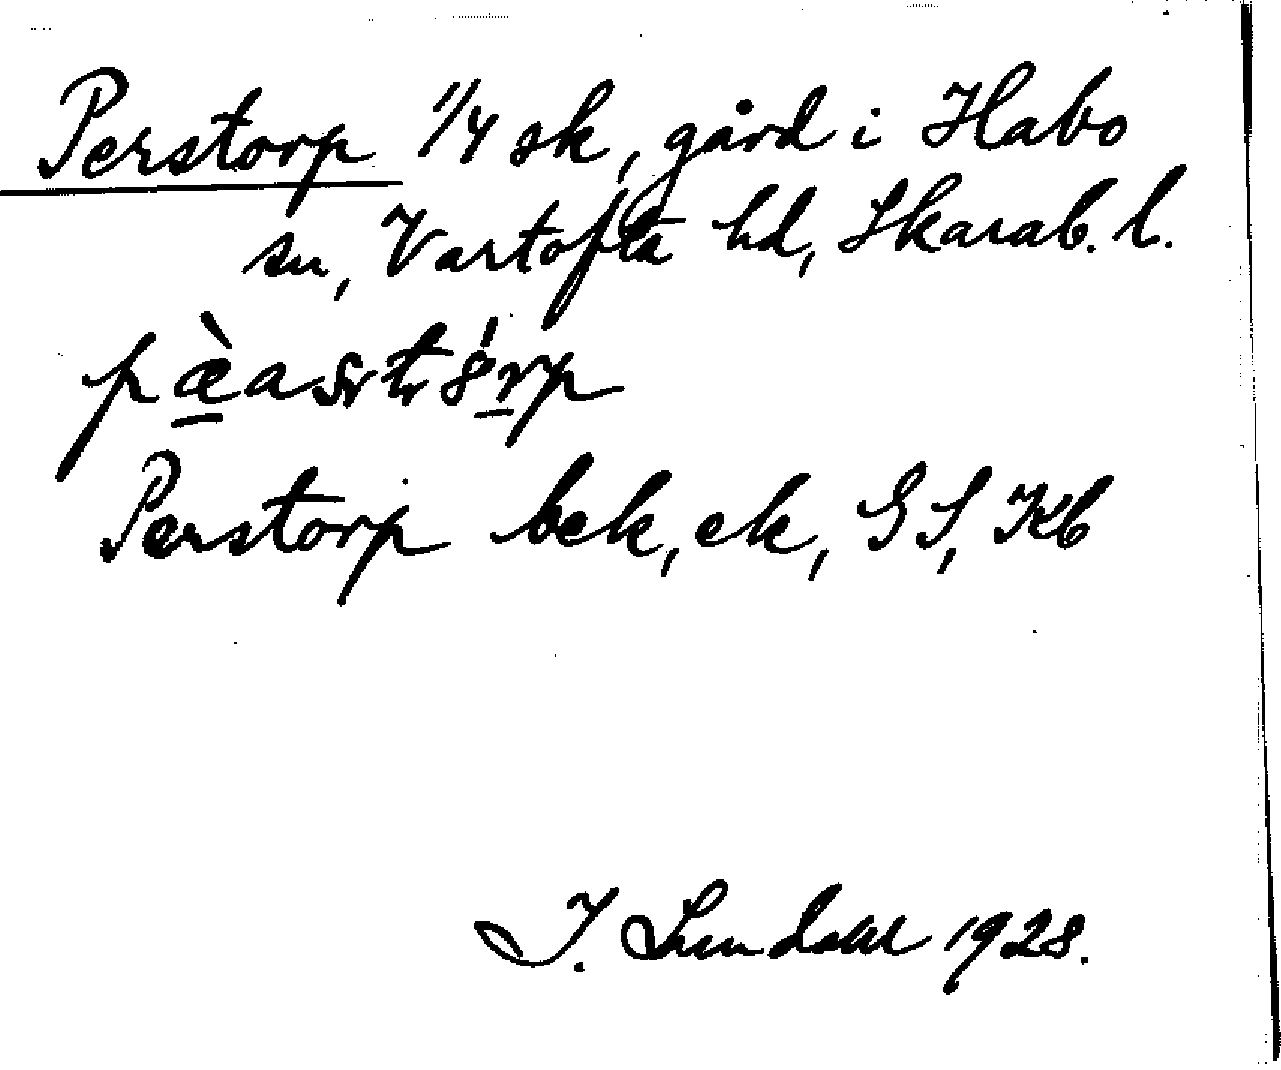 Perstorp 1/4 sk, gård i Habo
sn, Vartofta hd, Skarab. l.
pæ̀astórp
Perstorp bek, ek, GS, Kb
I. Lundahl 1928.